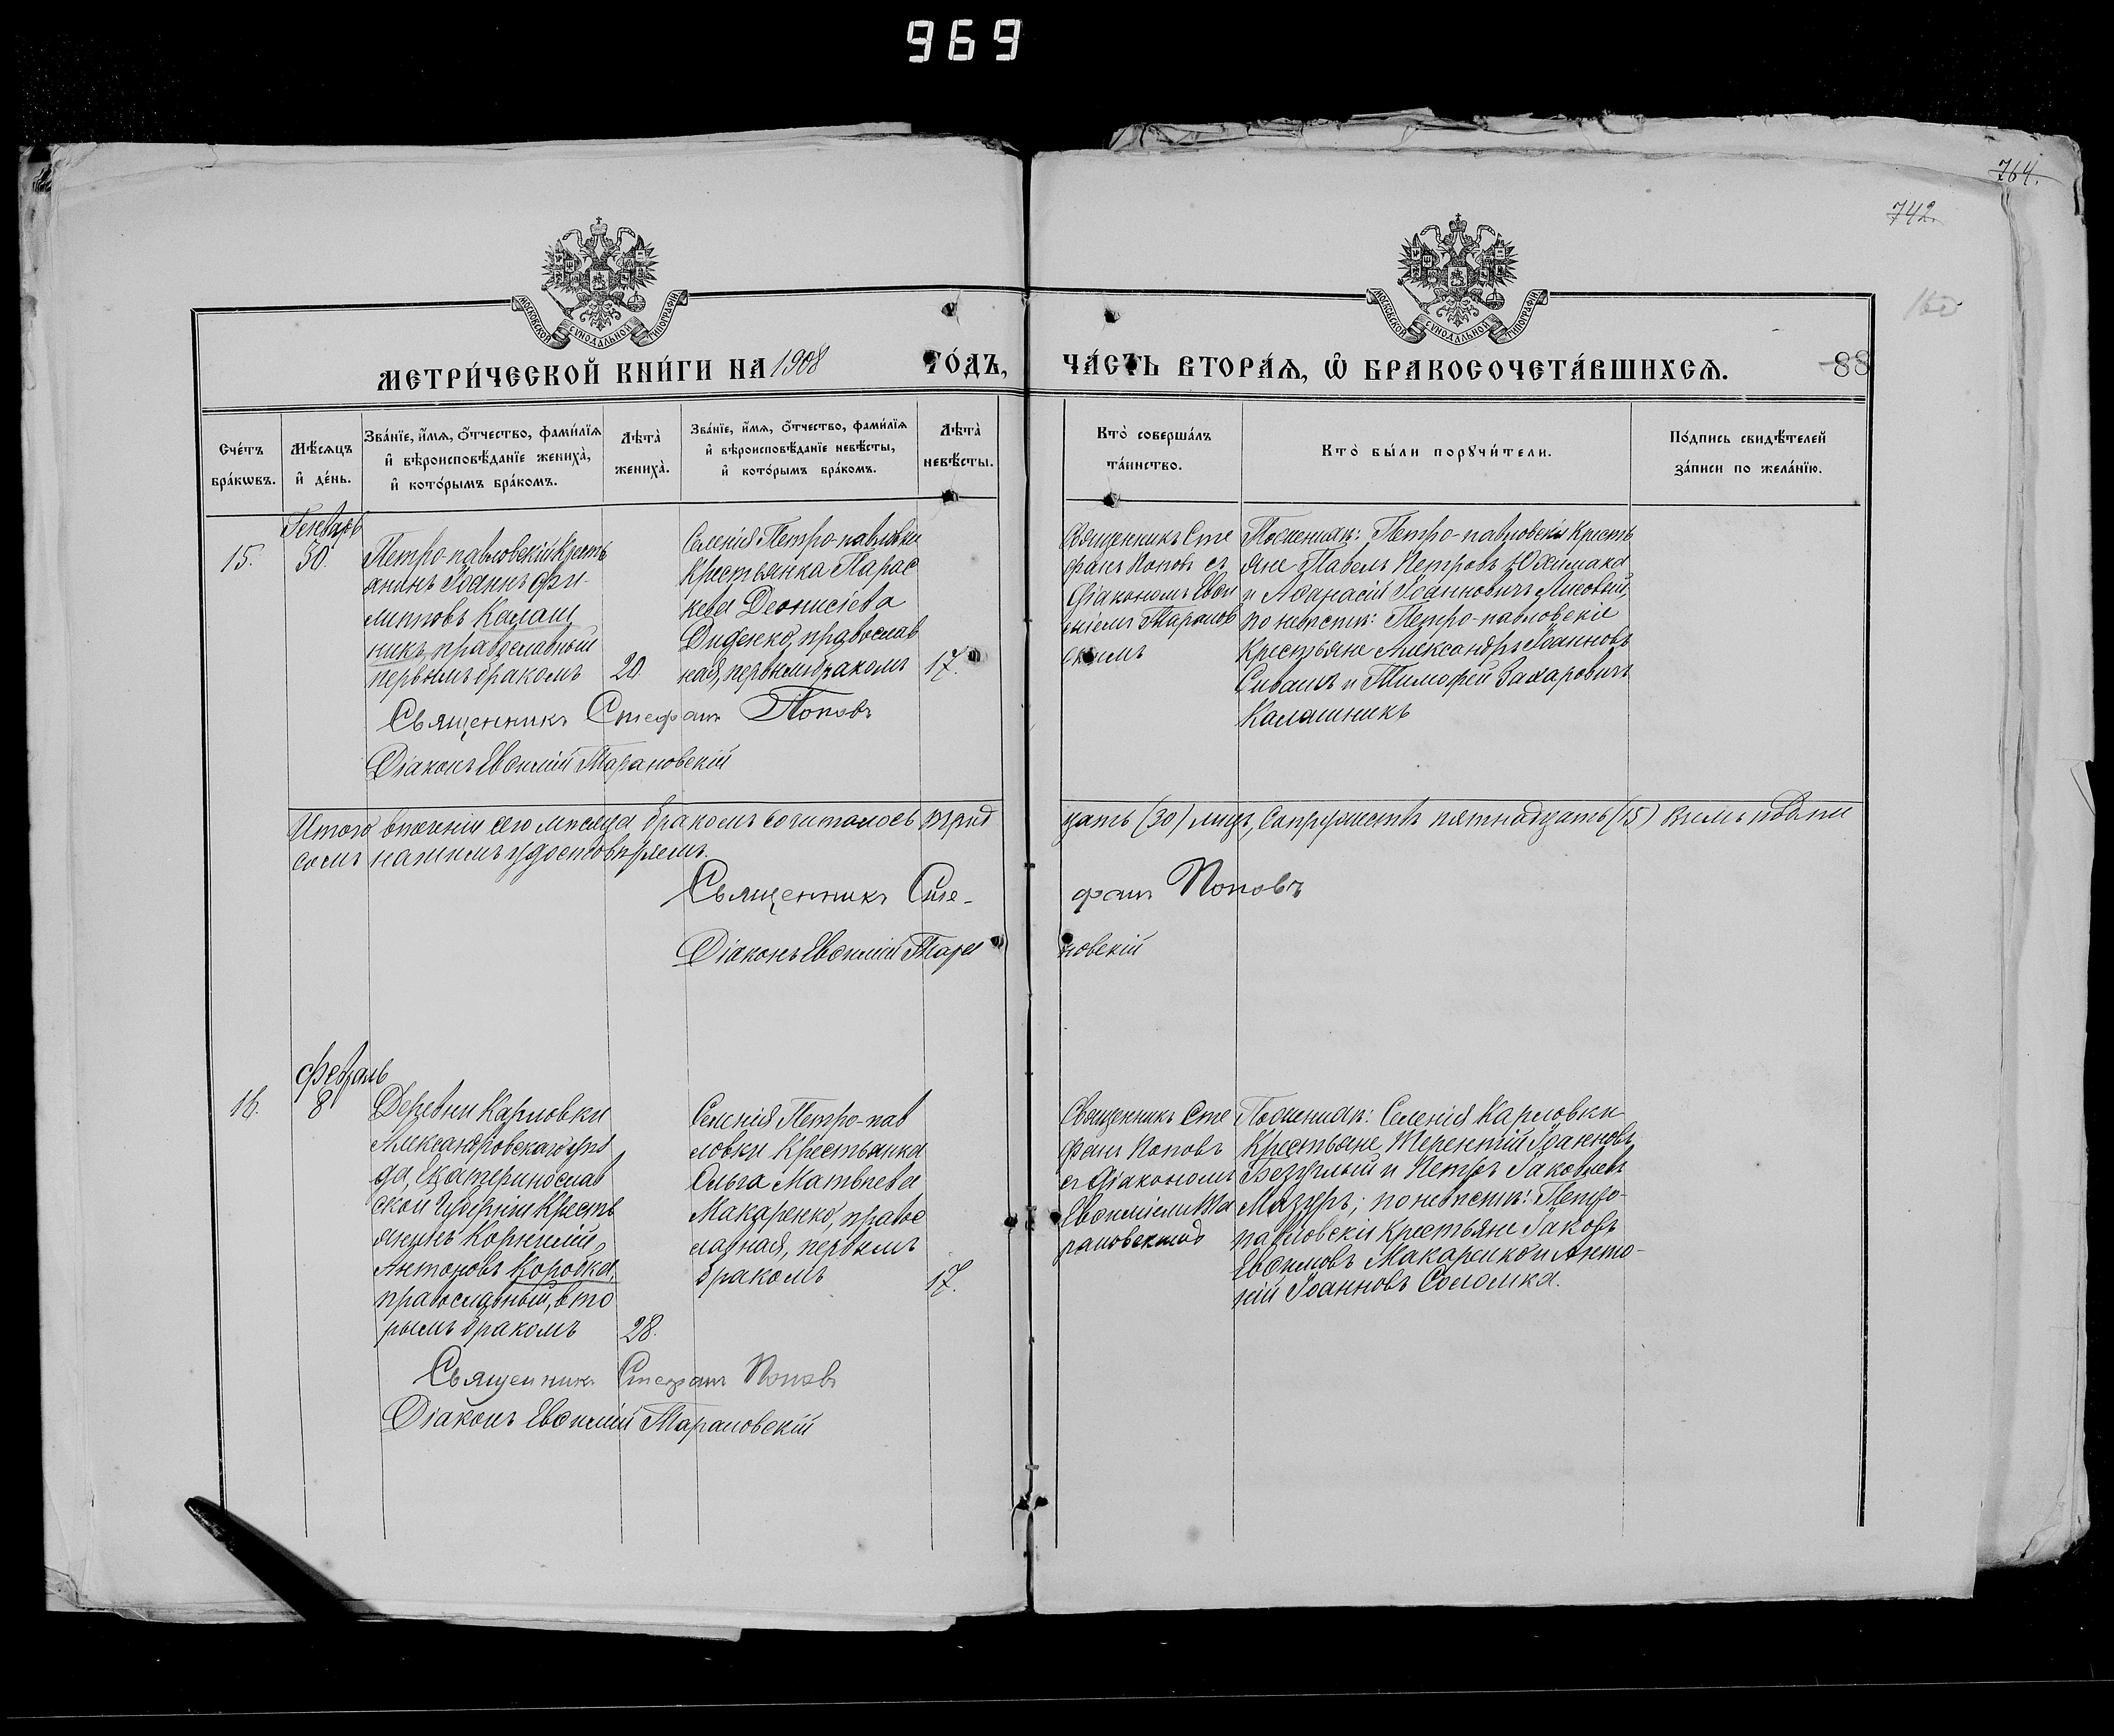 969
764.
742.
160
МОСКОВСКОЙ СѴНОДАЛЬНОЙ ТИПОГРАФІИ
МОСКОВСКОЙ СѴНОДАЛЬНОЙ ТИПОГРАФІИ
МЕТРИ́ЧЕСКОЙ КНИ́ГИ НА 1908 ГО́ДЪ,
ЧА́СТЬ ВТОРА́Ѧ, Ѽ БРАКОСОЧЕТА́ВШИХСѦ.
88
Сче́тъ
бра́кѡвъ.
Мѣ́сѧцъ
и҆ де́нь.
Зва́нїе, и҆́мѧ, ѻ҆́тчество, фами́лїѧ
и҆ вѣроисповѣ́данїе жениха̀,
и҆ кото́рымъ бра́комъ.
Лѣта̀
жениха̀.
Зва́нїе, и҆́мѧ, ѻ҆́тчество, фами́лїѧ
и҆ вѣроисповѣ́данїе невѣ́сты,
и҆ кото́рымъ бра́комъ.
Лѣта̀
невѣ́сты.
Кто̀ соверша́лъ
та́инство.
Кто̀ бы́ли порꙋчи́тели.
По́дпись свидѣ́телей
за́писи по жела́нїю.
Генварь
15.
30.
Петро-павловскій кресть
янинъ Іоаннъ Фи-
липповъ Калаш
никъ, православный
первымъ бракомъ
20.
Селенія Петро-павловки
крестьянка Парас
кева Деонисіева
Диденко, православ
ная, первымъ бракомъ
17.
Священникъ Сте
фанъ Поповъ съ
діакономъ Евѳи
міемъ Таранов
скимъ
По женихѣ: Петро-павловскіе кресть
яне Павелъ Петровъ Юхимака
и Аѳанасій Іоанновичъ Лисовый;
по невѣстѣ: Петро-павловскіе
крестьяне Александръ Іоанновъ
Сивашъ и Тимофей Захаровичъ
Калашникъ
Священникъ Стефанъ Поповъ
Діаконъ Евѳимій Тарановскій
Итого втеченіи сего мѣсяца бракомъ сочиталось трид
цать (30) лицъ, супружествъ пятнадцать (15) въ чемъ подпи
сомъ нашимъ удостовѣряемъ.
Священникъ Сте-
фанъ Поповъ
Діаконъ Евѳимій Тара
новскій
Февраль
16.
8
Деревни Карловки
Александровскаго уѣз
да, Екатеринослав
ской губерніи кресть
янинъ Корнилій
Антоновъ Коробка,
православный, вто
рымъ бракомъ
28.
Селенія Петро-пав
ловки крестьянка
Ольга Матвѣева
Макаренко, правос
лавная, первымъ
бракомъ
17.
Священникъ Сте
фанъ Поповъ
съ діакономъ
Евѳиміемъ Та
рановскимъ
По женихѣ: Селенія Карловки
крестьяне Терентій Іоанновъ
Беззубый и Петръ Іаковлевъ
Мазуръ; по невѣстѣ: Петро-
павловскіе крестьяне Іаковъ
Евѳимовъ Макаренко и Анто-
ній Іоанновъ Соломка.
Священникъ Стефанъ Поповъ
Діаконъ Евѳимій Тарановскій